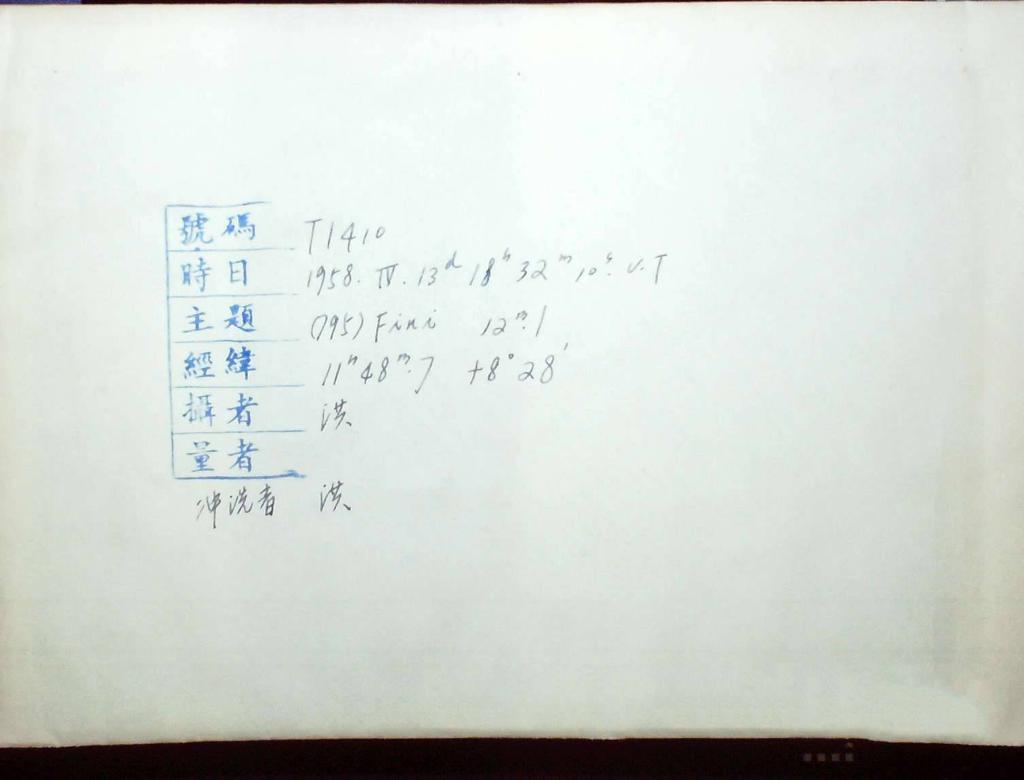 號碼 T1410
時日 1958. IV. 13ᵈ 18ʰ 32ᵐ 10ˢ. U.T
主題 (795) Fini 12ᵐ.1
經緯 11ʰ 48ᵐ.7 +8° 28'
攝者 洪
量者
沖洗者 洪